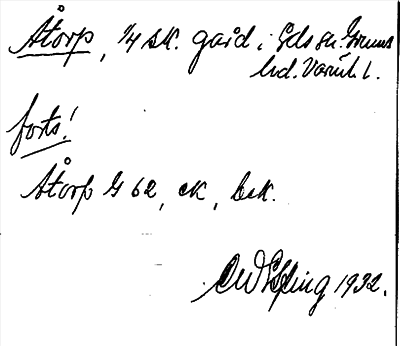 Åtorp, 1/4 sk. gård i Eds sn. Grums
hd. Värml.
forts!
Åtorp G 62, ek, bek.
1932.